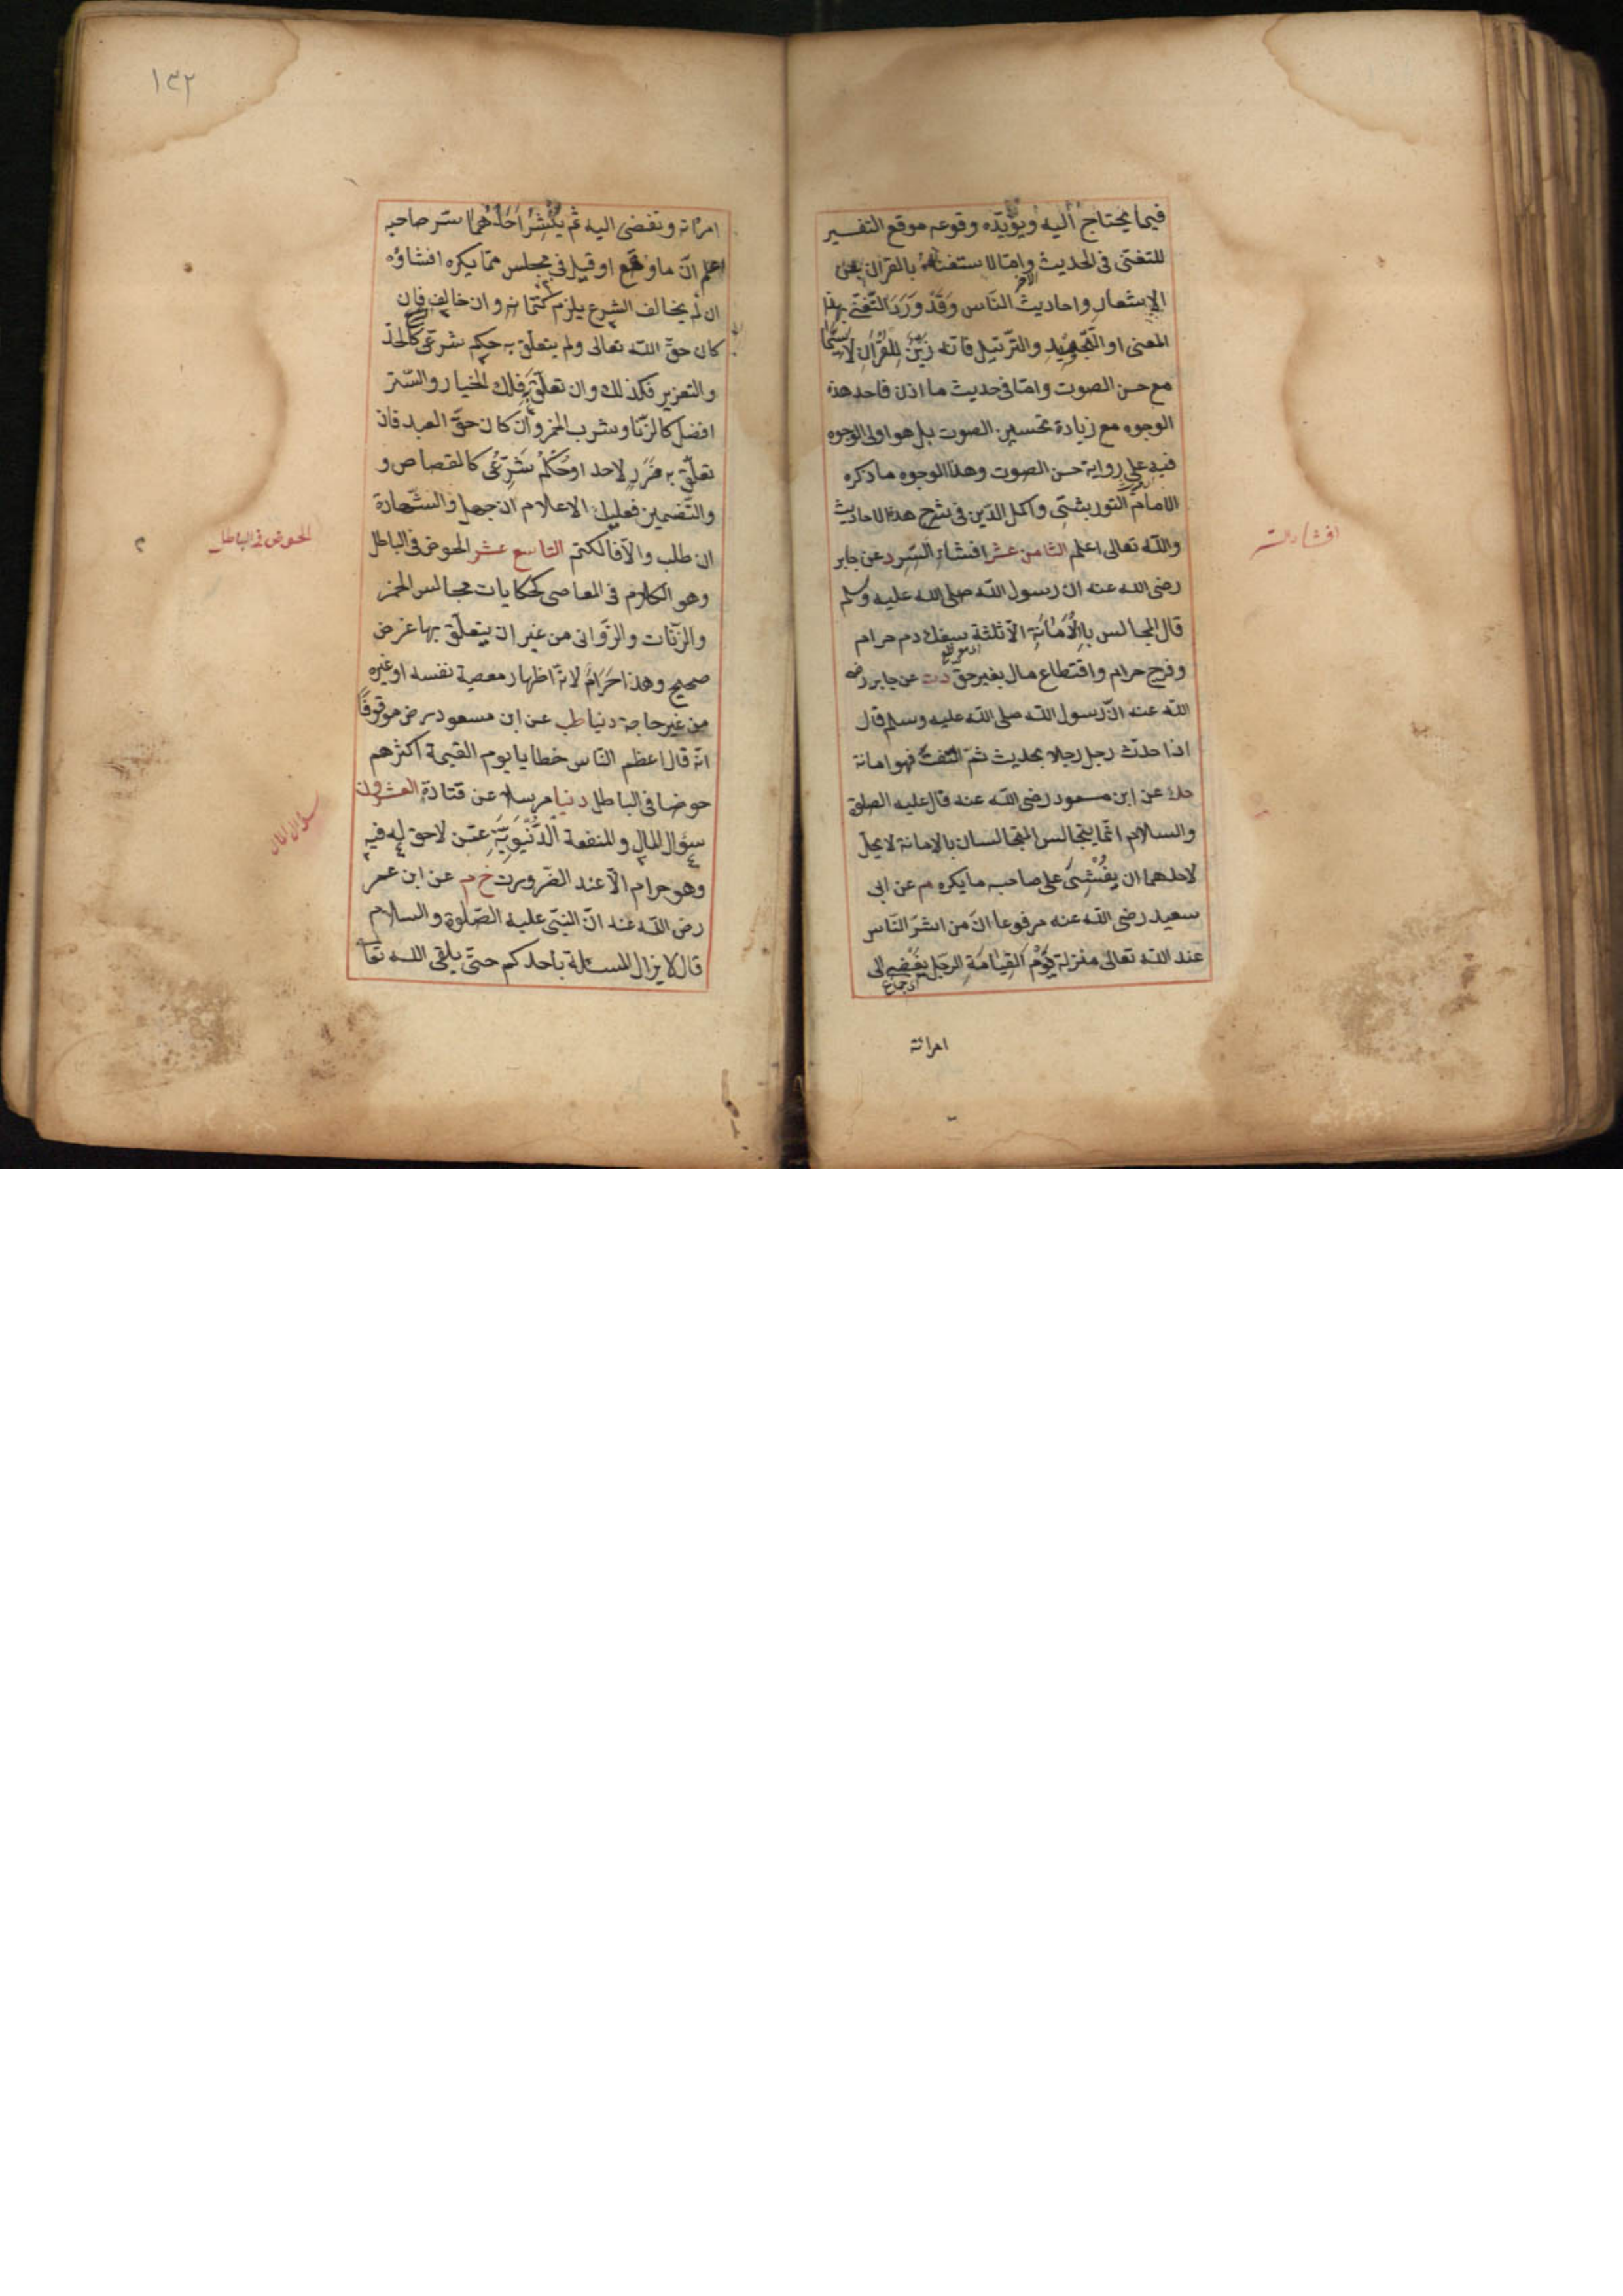 فيما يحتاج اليه ويؤيّده وقوعه موقع التفسير
للتغنّى فى الحديث وامّا الاستغناء بالقرآن عن
الاشعار واحاديث النّاس وَقَدْ وَرَدَ التّغنّى بهذا
المعنى او التّجويد والترتيل فانّه زَيْنٌ للقُرْأنِ لَاسِيَّمَا
مع حسن الصوت وامّا فى حديث ما اذن فاحد هذه
الوجوه مع زيادة تحسين الصوت بل هو اولى الوجوه
فيه على رواية حسن الصوت وهذا الوجوه ما ذكره
الامام التوربشتى واكمل الدّين فى شرح هذه الاحاديث
والله تعالى اعلم الثامن عشر افشاء السّر د عن جابر
رضى الله عنه ان رسول الله صلى الله عليه وسلم
قال المجالس بِالْأَمَانَةِ الّا ثلثة سفك دم حرام
وفرج حرام واقتطاع مال بغير حق دت عن جابر رضى
الله عنه انّ رسول الله صلى الله عليه وسلم قال
اذا حدّث رجل رجلا بحديث ثمّ التفت فهو امانة
حك عن ابن مسعود رضى الله عنه قال عليه الصلوة
والسلام انّما يتجالس المتجالسان بالامانة لا يحلّ
لاحدهما ان يُفْشِىَ على صاحبه ما يكره م عن ابى
سعيد رضى الله عنه مرفوعا انّ من اشرّ النّاس
عند الله تعالى منزلة يَوْمَ القِيَامَةِ الرجل يُفْضِى الى
امرأته
افشاء السر
١٣٢
امرأته وتفضى اليه ثم يَنْشُرُ اَحَدُهُمَا سرّ صاحبه
اعلم انّ ما وقع او قيل فى مجلس ممّا يكره افشاؤه
ان لم يخالف الشرع يلزم كتمانه وان خالف فان
كان حقّ الله تعالى ولم يتعلّق به حكم شرعىّ كالحدّ
والتعزير فكذلك وان تعلّق به فلك الخيار والسّتر
افضل كالزّنا وشرب الخمر وان كان حقّ العبد فان
تعلّق به ضَرَرٌ لاحد اوحُكْمٌ شَرْعِىٌّ كالقصاص و
والتّضمين فعليك الاعلام ان جهل والشّهادة
ان طلب والّا فالكتم التاسع عشر الخوض فى الباطل
وهو الكلام فى المعاصى كحكايات مجالس الخمر
والزنّات والزّوانى من غير ان يتعلّق بها غرض
صحيح وهذا حَرَامٌ لانّه اظهار معصية نفسه او غيره
من غير حاجة دنيا طب عن ابن مسعود رض موقوفًا
انّه قال اعظم النّاس خطايا يوم القيمة اكثرهم
خوضا فى الباطل دنيا مرسلا عن قتادة العشرون
سؤال المال والمنفعة الدُّنْيَوِيَّةِ عمّن لا حق له فيه
وهو حرام الّا عند الضّرورت خ م عن ابن عمر
رضى الله عنه انّ النبىّ عليه الصّلوة والسلام
قال لا يزال المسئلة باحدكم حتّى يلقى الله تعا
الخوض فى الباطل
سؤال المال